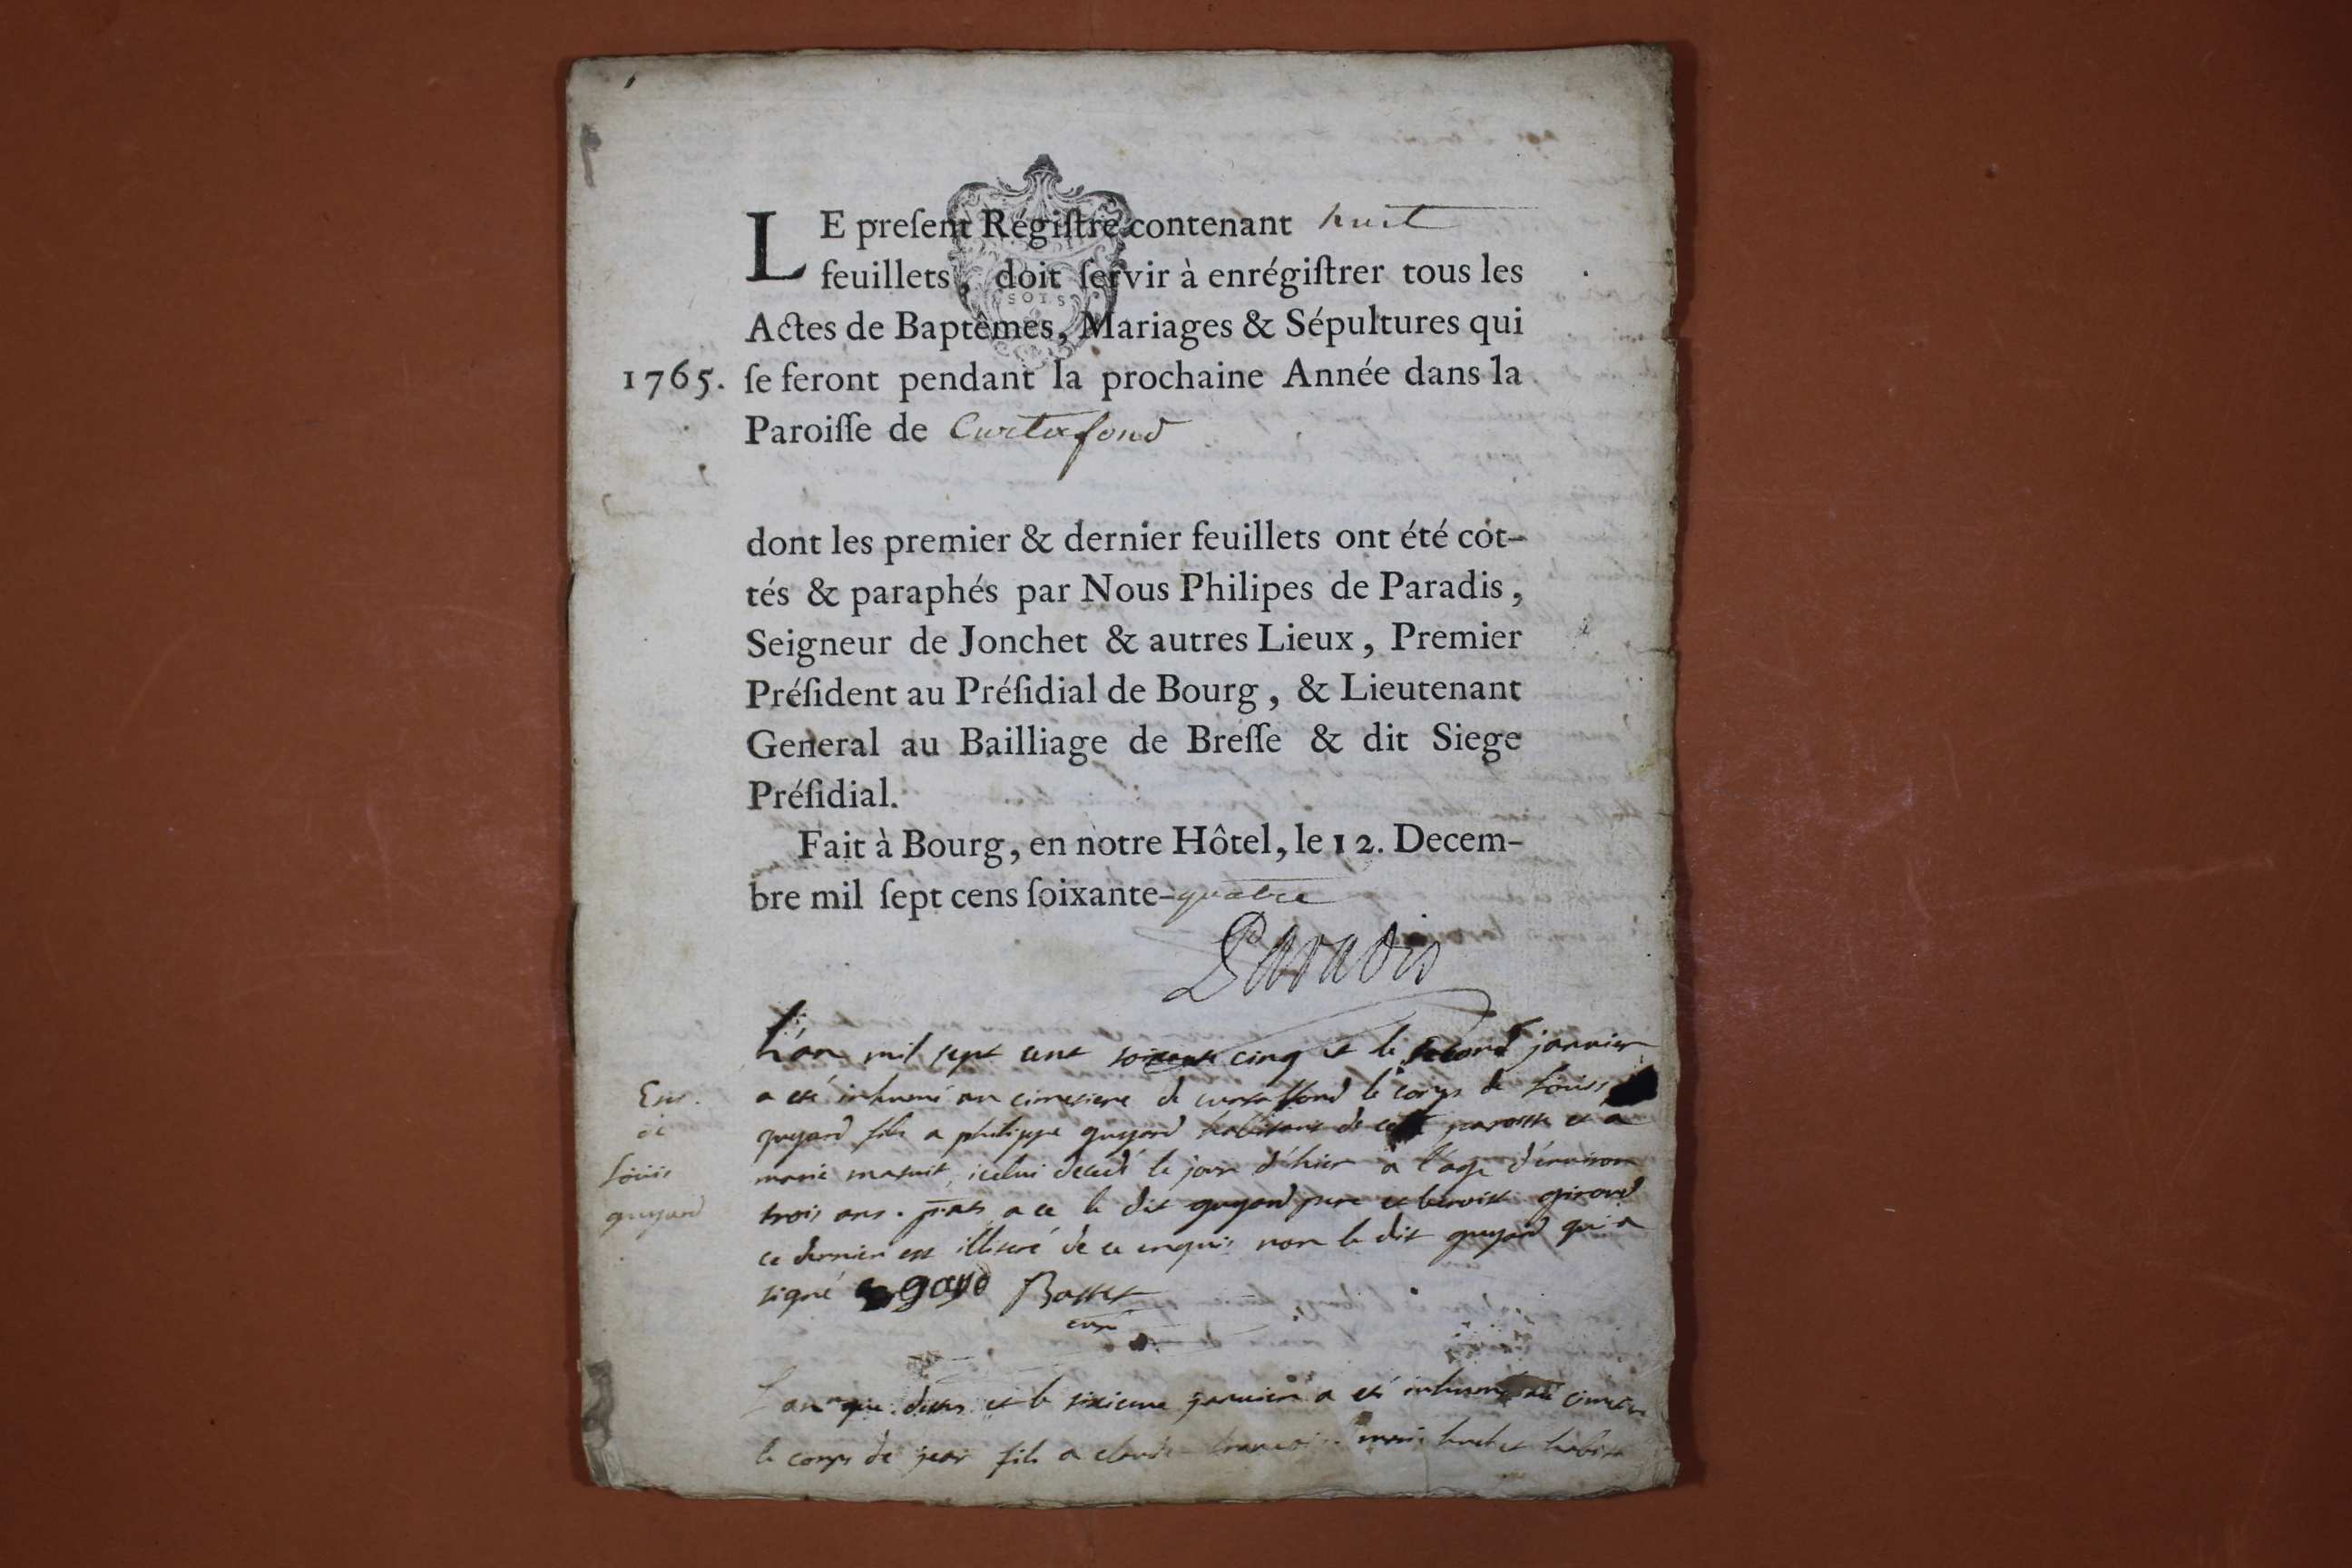 LE preſent Régiſtre contenant huit
feuillets, doit ſervir à enrégiſtrer tous les
SOLS
Actes de Baptêmes, Mariages & Sépultures qui
1765. ſe feront pendant la prochaine Année dans la
Paroiſſe de Curtafond
dont les premier & dernier feuillets ont été cot-
tés & paraphés par Nous Philipes de Paradis,
Seigneur de Jonchet & autres Lieux, Premier
Préſident au Préſidial de Bourg, & Lieutenant
General au Bailliage de Breſſe & dit Siege
Préſidial.
Fait à Bourg, en notre Hôtel, le 12. Decem-
bre mil ſept cens ſoixante-quatre
Paradis
L'an mil sept cent soixante cinq et le second janvier
a eté inhumé au cimetiere de curtaffond le corps de Louis
guyard fils a philippe guyard habitant de cette paroisse et a
marie, icelui decedé le jour d'hier a l'age d'environ
trois ans. pnts a ce le dit guyard pere et benoist girard
ce dernier est illiteré de ce enquis non le dit guyard qui a
signé gayd Basset
curé
Ent.
de
Louis
guyard
L'an que dessus et le sixieme janvier a eté inhumé au
le corps de jean fils a claude